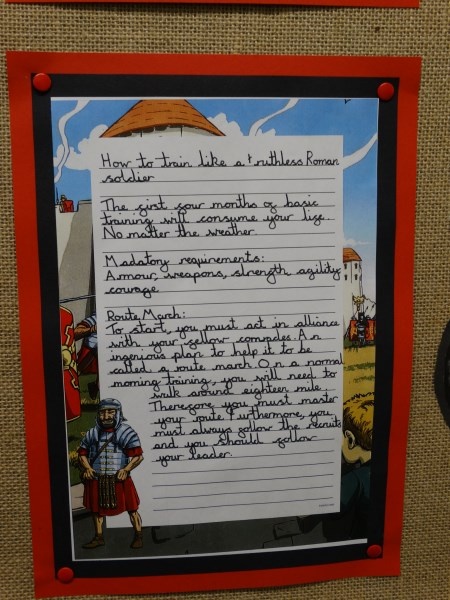 How to train like a ruthless Roman
soldier
The first four months of basic
training will consume your life.
No matter the weather.
Madatory requirements:
Armour, weapons, strength, agility,
courage
Route March:
To start, you must act in alliance
with your fellow comrades. An
ingenious plan to help it to be
called a route march. On a normal
morning training, you will need to
walk around eighteen mile.
Therefore, you must master
your route. Furthermore, you
must always follow the recruits
and you should follow
your leader.